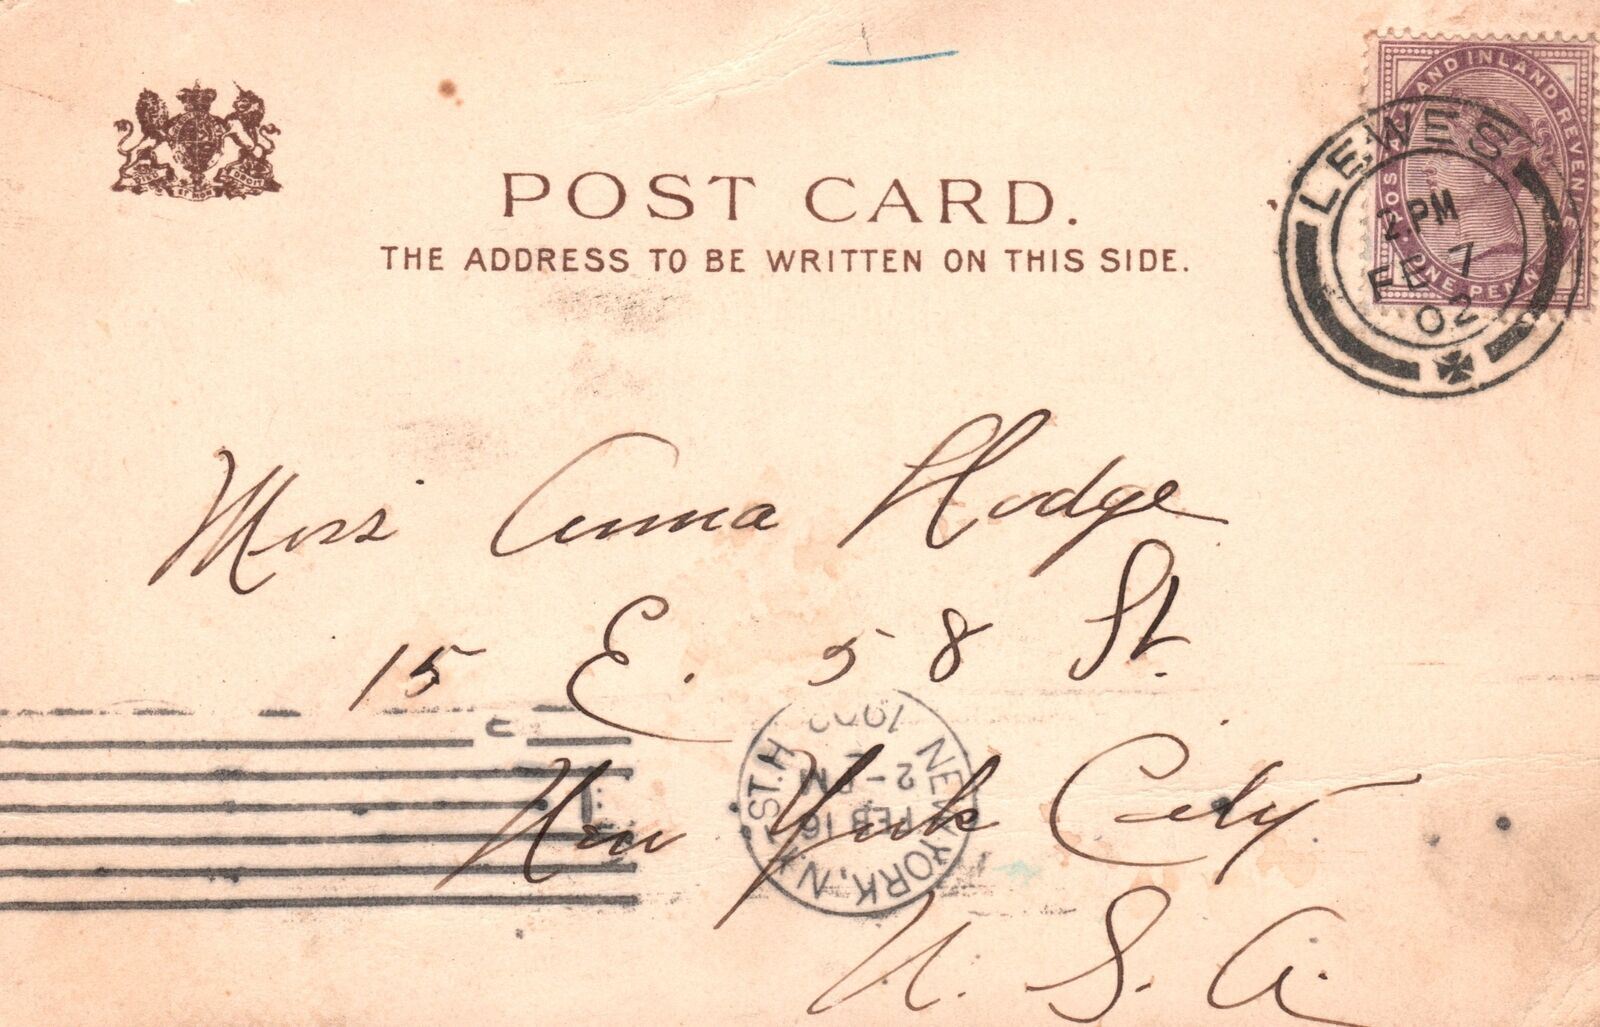 POST CARD.
THE ADDRESS TO BE WRITTEN ON THIS SIDE.
POS AND INLAND REVENUE
ONE PENNY
LEWES
2 PM
FE 7
02
Miss Anna Hodge
15 E. 58 St.
New York City
U. S. A.
NEW YORK, N.Y. ST. H
FEB 16
2 - PM